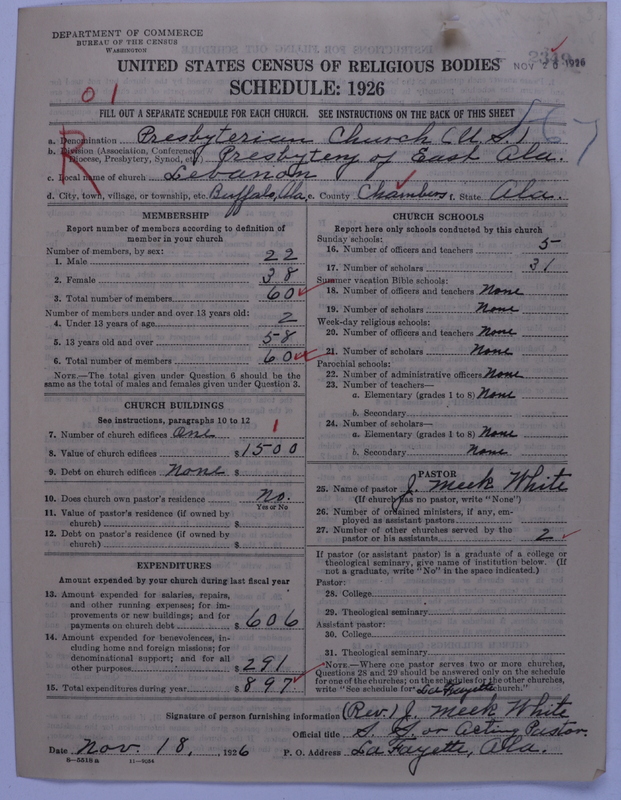 DEPARTMENT OF COMMERCE
BUREAU OF THE CENSUS
WASHINGTON
NOV 26 1926
UNITED STATES CENSUS OF RELIGIOUS BODIES
SCHEDULE: 1926
01
FILL OUT A SEPARATE SCHEDULE FOR EACH CHURCH. SEE INSTRUCTIONS ON THE BACK OF THIS SHEET
R
a. Denomination Presbyterian Church (U.S.)
b. Division (Association, Conference, Diocese, Presbytery, Synod, etc.) Presbytery of East Ala.
c. Local name of church Lebanon
d. City, town, village, or township, etc. Buffalo, Ala. e. County Chambers f. State Ala.
MEMBERSHIP
Report number of members according to definition of
member in your church
Number of members, by sex:
1. Male 22
2. Female 38
3. Total number of members 60
Number of members under and over 13 years old:
4. Under 13 years of age 2
5. 13 years old and over 58
6. Total number of members 60
NOTE.—The total given under Question 6 should be
same as the total of males and females given under Question 3.
CHURCH BUILDINGS
See instructions, paragraphs 10 to 12
7. Number of church edifices One 1
8. Value of church edifices $1500
9. Debt on church edifices None $
10. Does church own pastor's residence No.
Yes or No
11. Value of pastor's residence (if owned by
church) $
12. Debt on pastor's residence (if owned by
church) $
EXPENDITURES
Amount expended by your church during last fiscal year
13. Amount expended for salaries, repairs,
and other running expenses; for im-
provements or new buildings; and for
payments on church debt $606
14. Amount expended for benevolences, in-
cluding home and foreign missions; for
denominational support; and for all
other purposes $291
15. Total expenditures during year $897
CHURCH SCHOOLS
Report here only schools conducted by this church
Sunday schools:
16. Number of officers and teachers 5
17. Number of scholars 31
Summer vacation Bible schools:
18. Number of officers and teachers None
19. Number of scholars None
Week-day religious schools:
20. Number of officers and teachers None
21. Number of scholars None
Parochial schools:
22. Number of administrative officers None
23. Number of teachers—
a. Elementary (grades 1 to 8) None
b. Secondary
24. Number of scholars—
a. Elementary (grades 1 to 8) None
b. Secondary None
PASTOR
25. Name of pastor J. Meek White
(If church has no pastor, write "None")
26. Number of ordained ministers, if any, em-
ployed as assistant pastors
27. Number of other churches served by the
pastor or his assistants 2
If pastor (or assistant pastor) is a graduate of a college or
theological seminary, give name of institution below. (If
not a graduate, write "No" in the space indicated.)
Pastor:
28. College
29. Theological seminary
Assistant pastor:
30. College
31. Theological seminary
NOTE.—Where one pastor serves two or more churches,
Questions 28 and 29 should be answered only on the schedule
for one of the churches; on the schedules for the other churches,
write "See schedule for La Fayette church."
Signature of person furnishing information (Rev.) J. Meek White
Official title S. S. or Acting Pastor.
Date Nov. 18, 1926 P. O. Address La Fayette, Ala.
8-5518a 11-9284